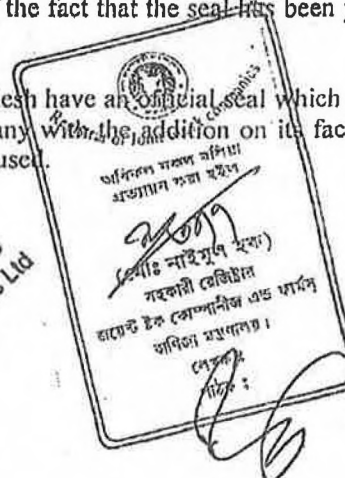 the fact that the seal has been
esh have an official seal which
any with the addition on its fac
used.
Registrar of Joint Stock Companies
অবিকল নকল বলিয়া
প্রত্যায়ন করা হইল
(মোঃ নাইমুল হুদা)
সহকারী রেজিষ্ট্রার
জয়েন্ট ষ্টক কোম্পানীজ এন্ড ফার্মস্
বাণিজ্য মন্ত্রণালয়।
লেখক ঃ
পাঠক ঃ
Ltd